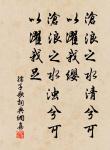 滄浪之水清兮可
以濯我纓
滄浪之水濁兮可
以濯我足
孺子歌詞典網